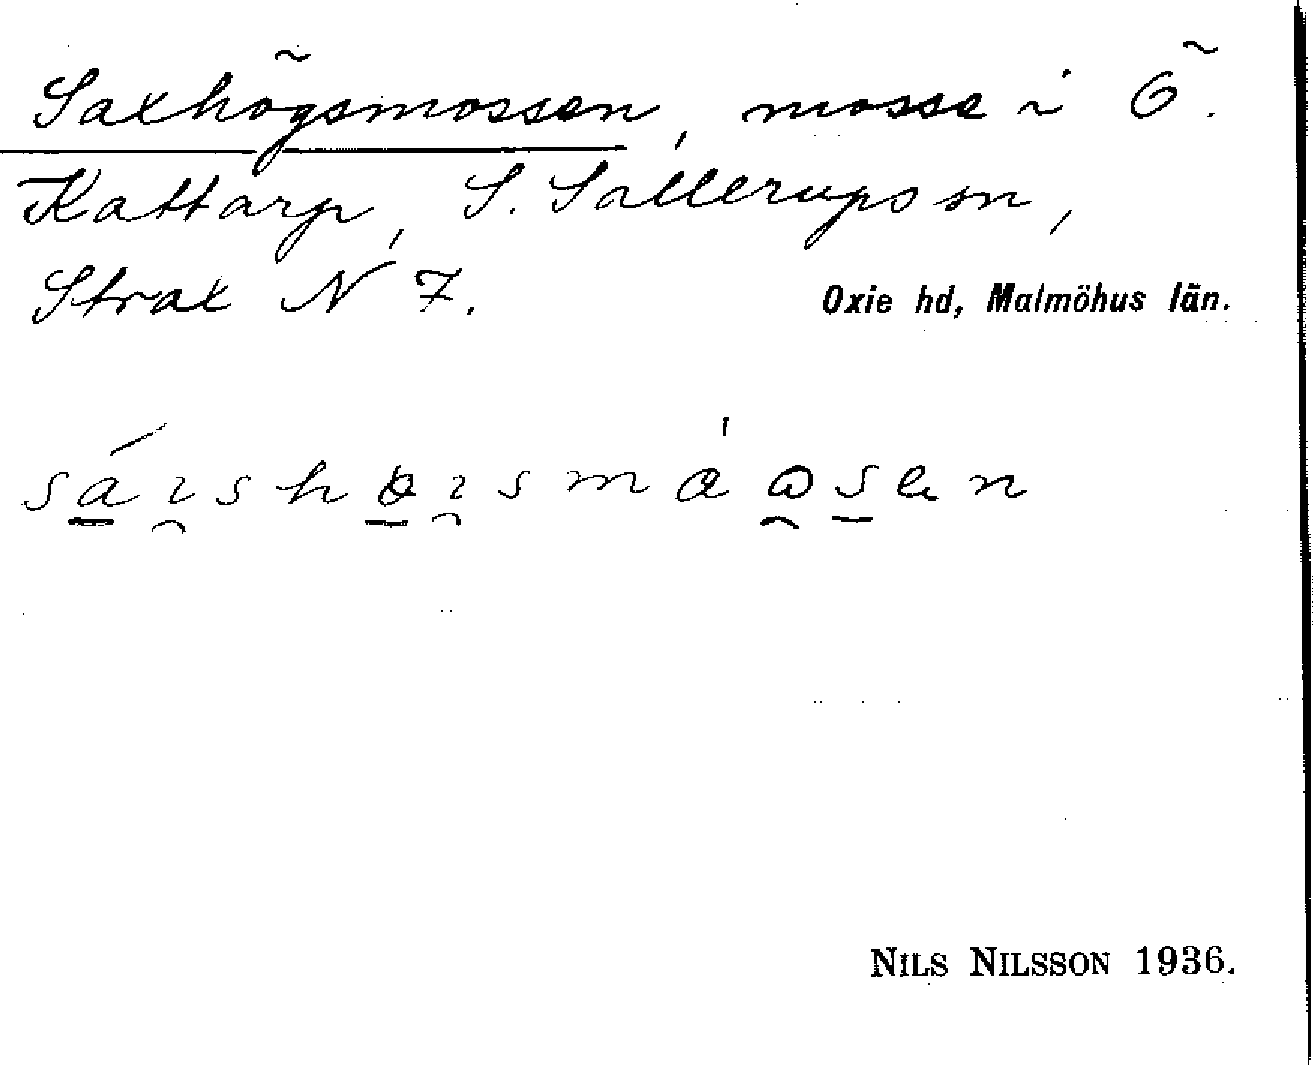 Saxhögsmossen, mosse i Ö.
Kattarp, S. Sallerups sn,
Strax N 7.
Oxie hd, Malmöhus län.
NILS NILSSON 1936.